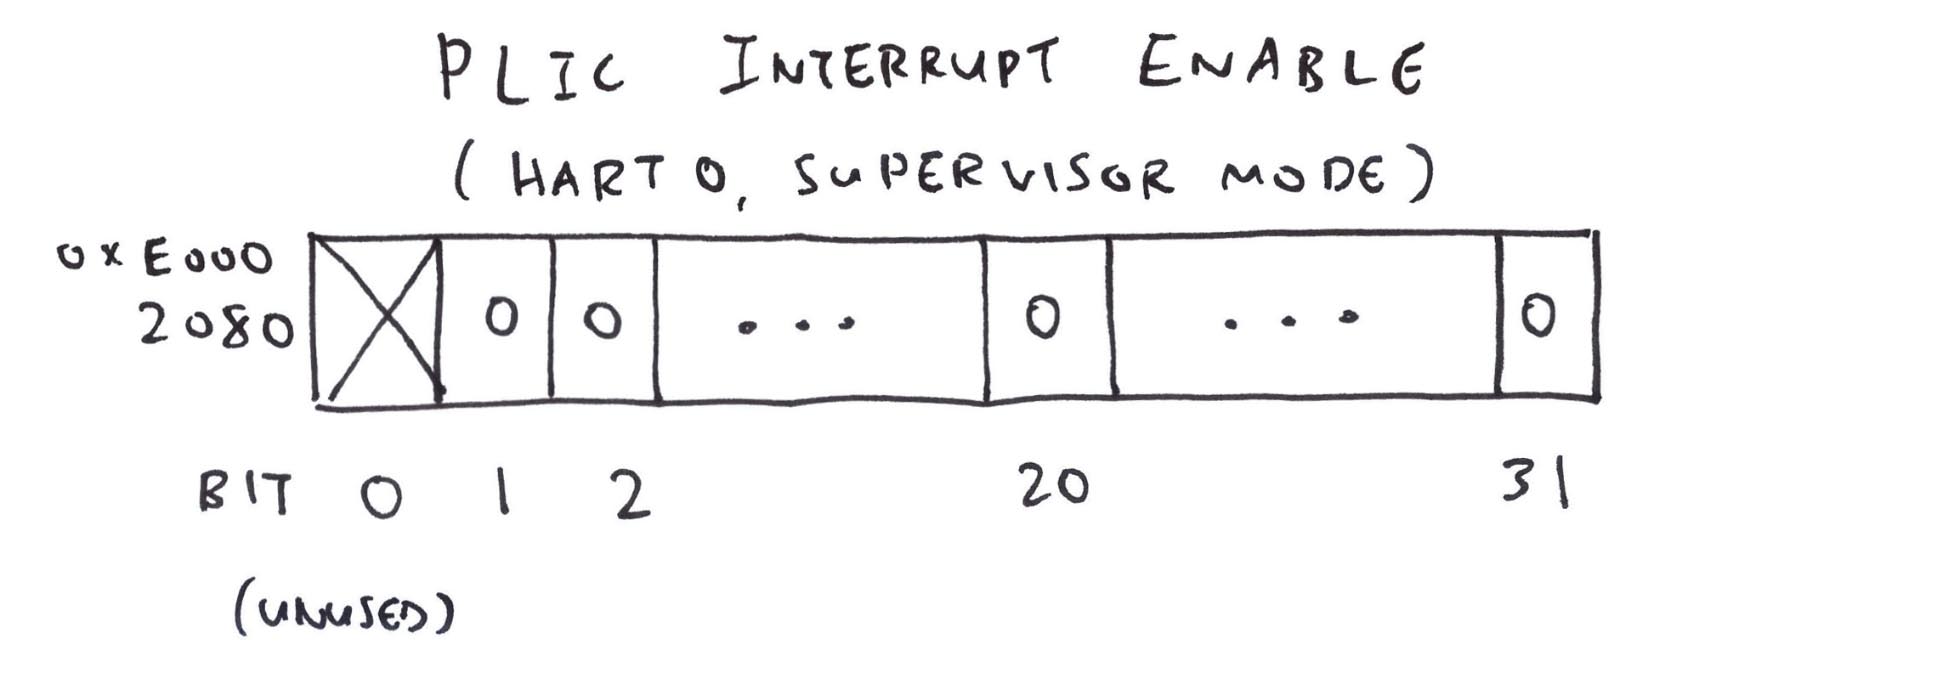 PLIC INTERRUPT ENABLE
(HART 0, SUPERVISOR MODE)
0xE000
2080
0 0 ... 0 ... 0
BIT 0 1 2 20 31
(UNUSED)